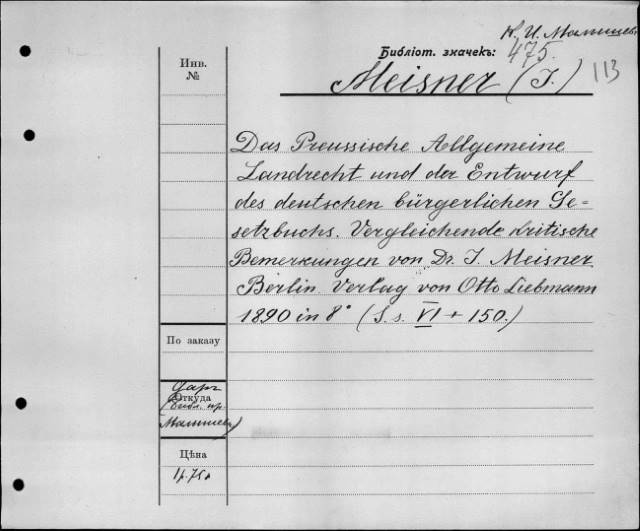 К. И. Малышев
Библіот. значекъ:
475.
Meisner (J.)
113
Инв.
№
Das Preussische Allgemeine
Landrecht und der Entwurf
des deutschen bürgerlichen Ge-
setzbuchs. Vergleichende kritische
Bemerkungen von Dr. J. Meisner
Berlin. Verlag von Otto Liebmann
1890 in 8° (S.s. VI + 150.)
По заказу
Даръ
Откуда
(Библ. пр.
Малышева)
Цѣна
1р.75к